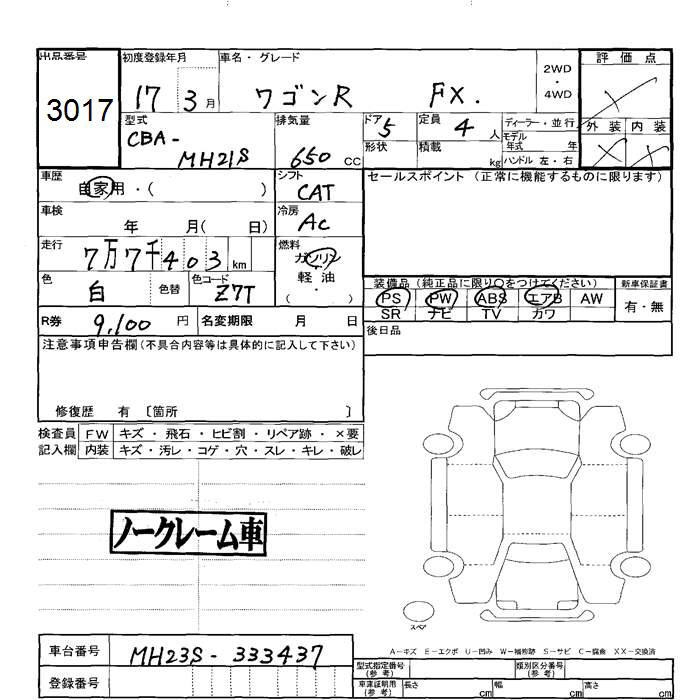 出品番号
3017
初度登録年月
17 3月
車名・グレード
ワゴンR FX.
2WD
・
4WD
評価点
外装 内装
型式
CBA-
MH21S
排気量
650 CC
ドア
5
形状
定員
4 人
積載
kg
ディーラー・並行
モデル
年式 年
ハンドル 左・右
車歴
自家用・( )
シフト
CAT
セールスポイント(正常に機能するものに限ります)
車検
年 月( 日)
冷房
AC
走行
7万7千403 km
燃料
ガソリン
軽油
( ・ )
色
白
色替
色コード
Z7T
装備品(純正品に限り○をつけてください)
PS PW ABS エアB AW
SR ナビ TV カワ
新車保証書
有・無
R券
9,100 円
名変期限 月 日
後日品
注意事項申告欄(不具合内容等は具体的に記入して下さい)
修復歴 有 〔箇所 〕
検査員
記入欄
FW キズ・飛石・ヒビ割・リペア跡・×要
内装 キズ・汚レ・コゲ・穴・スレ・キレ・破レ
ノークレーム車
スペア
A-キズ E-エクボ U-凹み W-補修跡 S-サビ C-腐食 XX-交換済
車台番号
MH23S-333437
登録番号
型式指定番号
(参考)
類別区分番号
(参考)
車庫証明用
(参考)
長さ cm 幅 cm 高さ cm